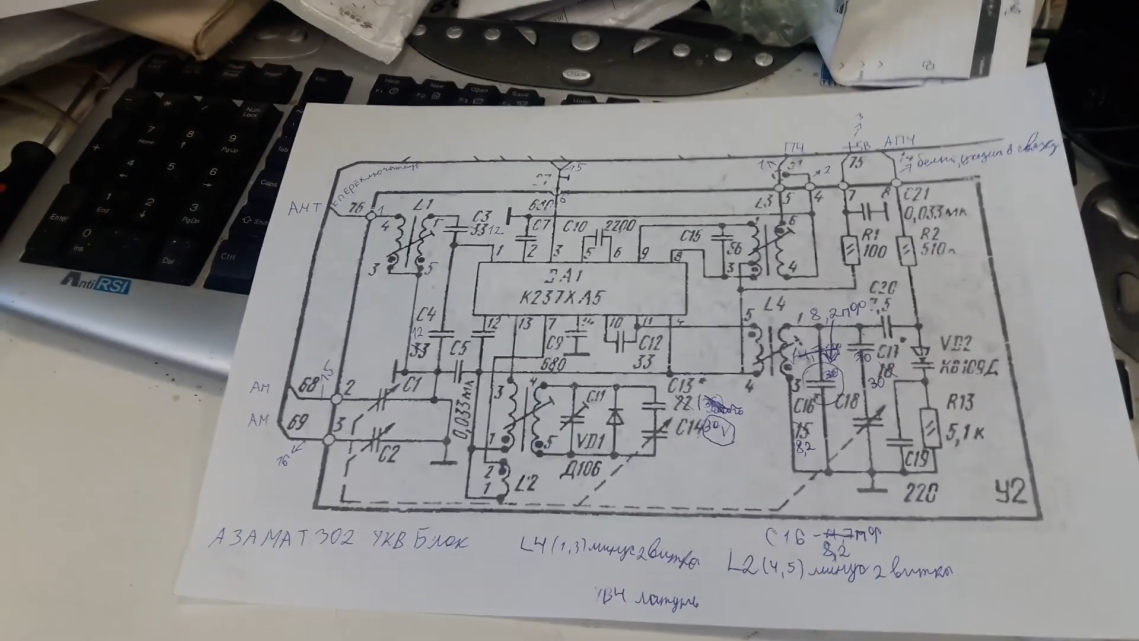 AntiRSI
ПЧ
АПЧ
белый, идёт в связку
АНТ
76
L1
C3
33
12
680
C7
C10
2200
C15
56
L3
R1
100
C21
0,033 мк
R2
510к
DA1
К237ХА5
C4
12
33
C5
0,033 мк
C9
680
C12
33
L4
8,2 пф
C20
7,5
C17
18
30
VD2
КВ109Д
АМ
68
15
2
C1
АМ
69
3
16
C2
C13*
22
C11
VD1
Д106
C14
30
C16*
15
8,2
C18
C19
220
R13
5,1к
L2
У2
АЗАМАТ 302 УКВ Блок
L4 (1,3) минус 2 витка
C16 - 4,7 пф
8,2
L2 (4,5) минус 2 витка
УВЧ латунь